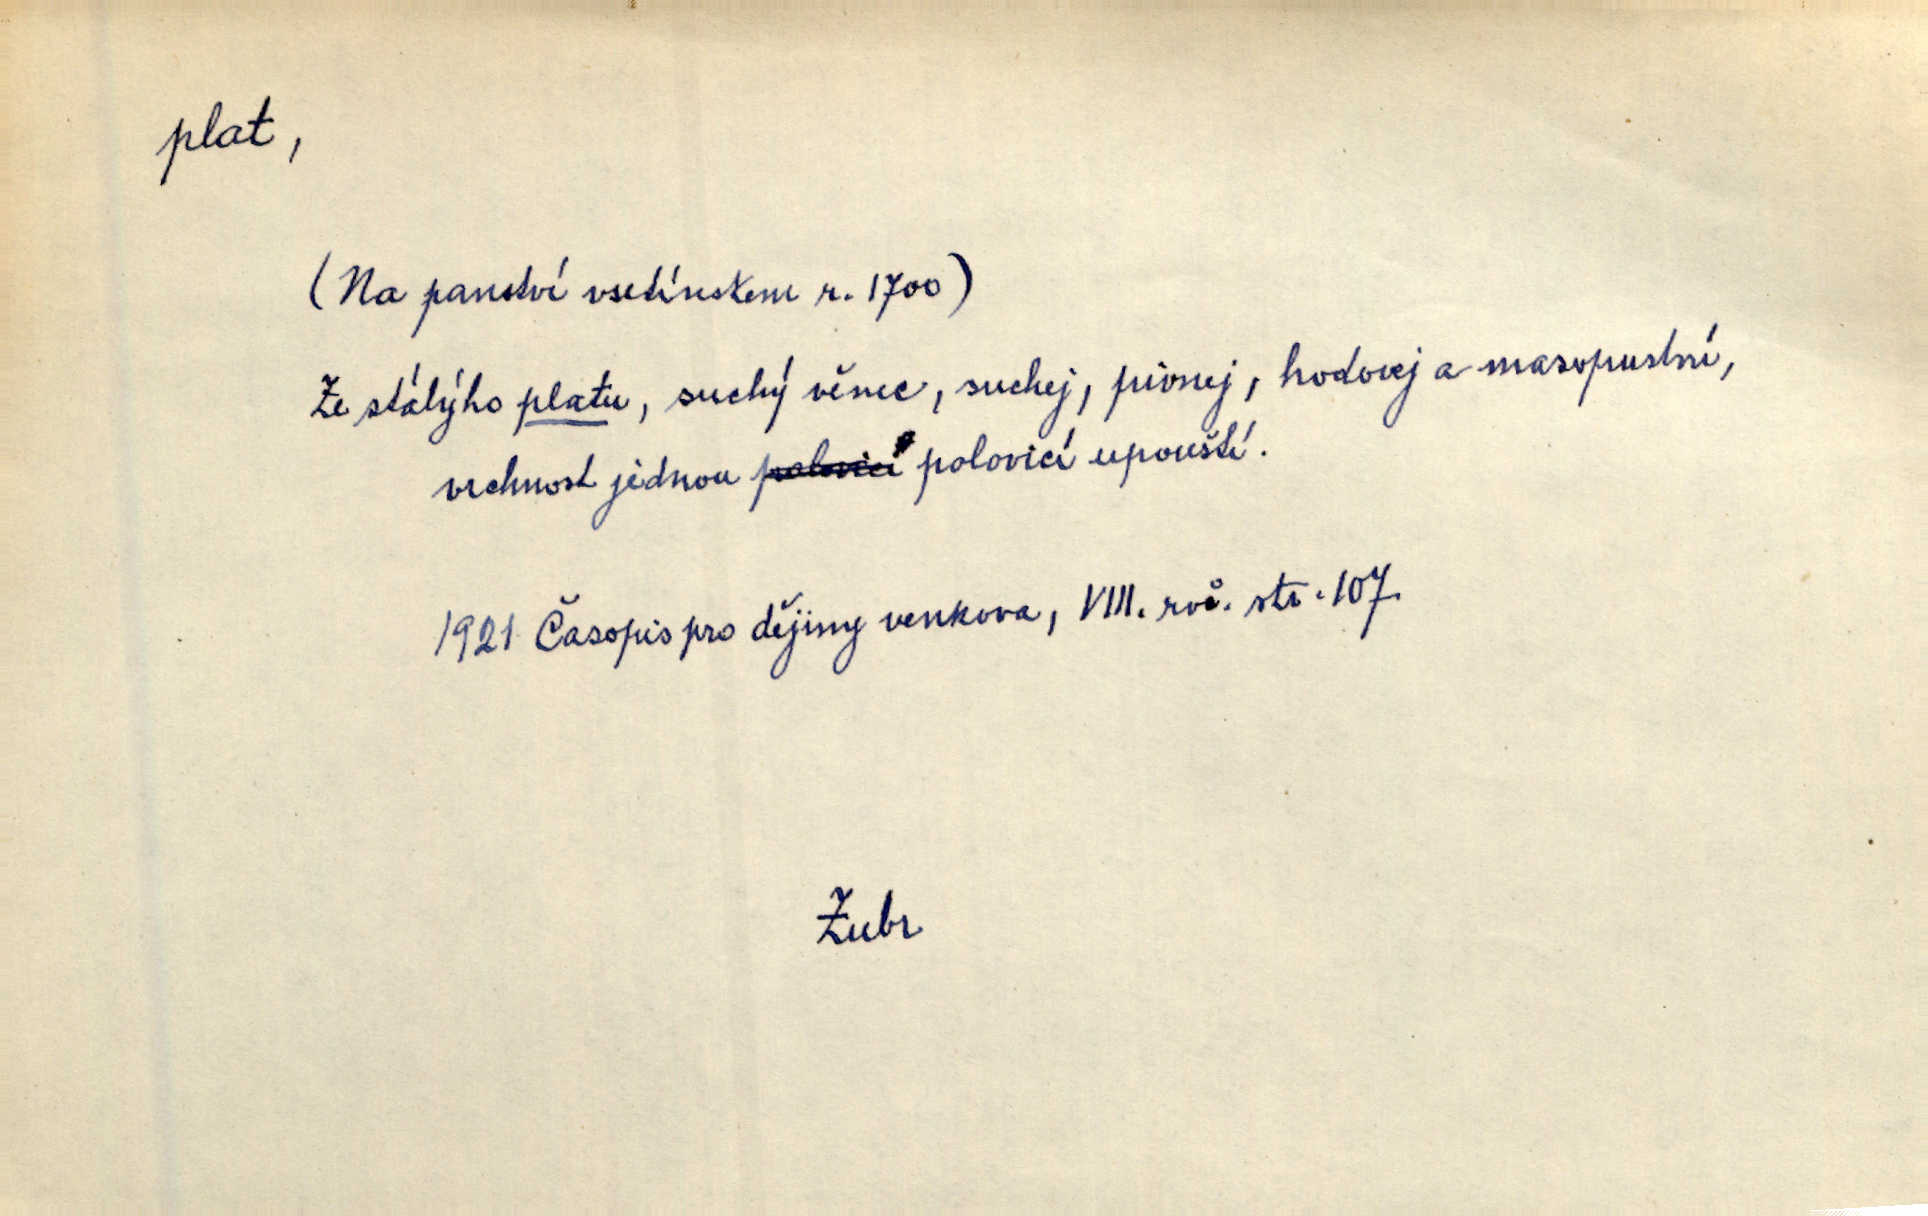 plat,
(Na panství vsetínskem r. 1700)
Ze stálýho platu, suchý věnec, suchej, pivnej, hodovej a masopustní,
vrchnost jednou polovicí polovicí upouští.
1921 Časopis pro dějiny venkova, VIII. roč. str. 107.
Zubr